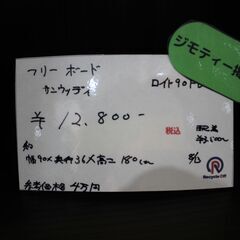 フリーボード
ジモティー掲
サンウッディ
ロイト90F
¥12,800-
税込
配送
約
幅90×奥行36×高こ180cm
5/6
Recycle Off
参考価格 4万円